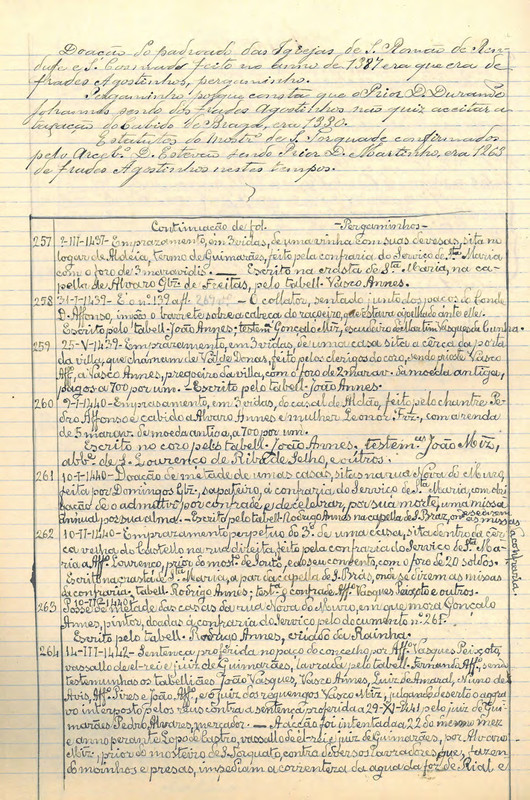 Doação do padroado das Igrejas de S. Romão de Ren-
dufe e S. Cosmado feito no anno de 1387 era que era de
frades Agostinhos, pergaminho.
Pergaminho porque consta que o Prior D. Durando
sendo dos frades Agostinhos não quiz acceitar a
do cabido de Braga, era 1330.
Estatutos do Mostr.º de S. Torquade confirmados
pelo Arceb.º D. Estevão sendo Prior D. Martinho, era 1263
de frades Agostinhos nestes tempos.
Continuação de fol. -Pergaminhos-
257 ?-III-1437- Emprazamento, em 3 vidas, de uma vinha com suas devesas, sita no
logar de Aldeia, termo de Guimarães, feito pela confraria do Serviço de Sta Maria
com o foro de 3 maravidis. — Escrito na crasta de Sta Maria, na ca-
pella de Alvaro Glz de Freitas, pelo tabell. Vasco Annes.
258 31-I-1439- E o n.º 139 a fl. - O collator, sentado junto dos paços do Conde
D. Affonso, impôs o barrete sobre a cabeça do raçoeiro, que estava ajoelhado ante elle.
Escrito pelo tabell. João Annes; testem. Gonçalo Miz, escudeiro de Martim Vasques da Cunha.
259 25-V-1439- Emprazamento, em 3 vidas, de uma casa sita a cerca da porta
da villa, que chamam de Val de Donas, feito pelos clerigos do coro, sendo prioste Vasco
Affº, a Vasco Annes, pregoeiro da villa, com o foro de 2 marav. da moeda antiga,
pagos a 700 por um. - Escrito pelo tabell. João Annes.
260 9-I-1440- Emprasamento, em 3 vidas, do casal de Aldão, feito pelo chantre Pe-
dro Affonso e cabido a Alvaro Annes e mulher Leonor Frz, com a renda
de 5 marav. de moeda antiga, a 700 por um.
Escrito no coro pelo tabell. João Annes. testem.as João Miz,
abb.e de S. Lourenço de Riba de Selho, e outros.
261 10-I-1440- Doação de metade de umas casas, sitas na rua Nova do Muro,
feita por Domingos Glz, sapateiro, á confraria do Serviço de Sta Maria, com obri-
gação de o admittir por confrade, e de celebrar, por sua morte, uma missa
annual por sua alma. - Escrito pelo tabell. Rodrigo Annes na capella de S. Braz, onde se dizem
as missas
da confraria.
262 10-II-1440- Emprazamento perpetuo do 3.º de uma casa, sita dentro da cêr-
ca velha do Castello na rua direita, feita pela confraria do Serviço de Sta Ma-
ria a Affº Lourenço, prior do most.º de Souto, e de seu convento, com o foro de 20 soldos.
Escrito na crasta de Sta Maria, a par da capella de S. Brás, onde se dizem as missas
da confraria. Tabell. Rodrigo Annes; test. o confrade Affº Vasques Peixoto e outros.
263 10-III-1440-
Posse de metade das casas da rua Nova do Muro, em que mora Gonçalo
Annes, pintor, doadas á confraria do Serviço pelo documento n.º 261.
Escrito pelo tabell. Rodrigo Annes, criado da Rainha.
264 14-III-1442- Sentença proferida no paço do concelho por Affº Vasques Peixoto,
vassallo de el-rei e juiz de Guimarães, lavrada pelo tabell. Fernando Affº, sendo
testemunhas os tabelliães João Vasques, Vasco Annes, Luiz de Amaral, Nuno de
Avis, Affº Pires e João Affº, e o juiz dos reguengos Vasco Miz, julgando deserto o aggra-
vo interposto pelos réus contra a sentença proferida a 29-XI-1441 pelo juiz de Gui-
marães Pedro Alvares, mercador. — A acção foi intentada a 22 do mesmo mez
e anno perante Lopo de Castro, vassallo de el-rei e juiz de Guimarães, por Alvaro
Miz, prior do mosteiro de S. Torquato, contra diversos lavradores que, fazen-
do moinhos e presas, impediam a correnteza da agua da foz de Rial e